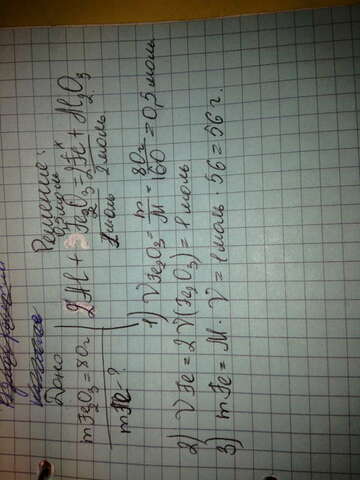 Дано
Решение:
mFe₂O₃=80г
80г/моль x
2Al + Fe₂O₃ = 2Fe + Al₂O₃
моль 2моль
mFe-?
1) νFe₂O₃ = m/M = 80г/160 = 0,5 моль
2) νFe = 2ν(Fe₂O₃) = 1 моль
3) mFe = M · ν = 1 моль · 56 = 56 г.